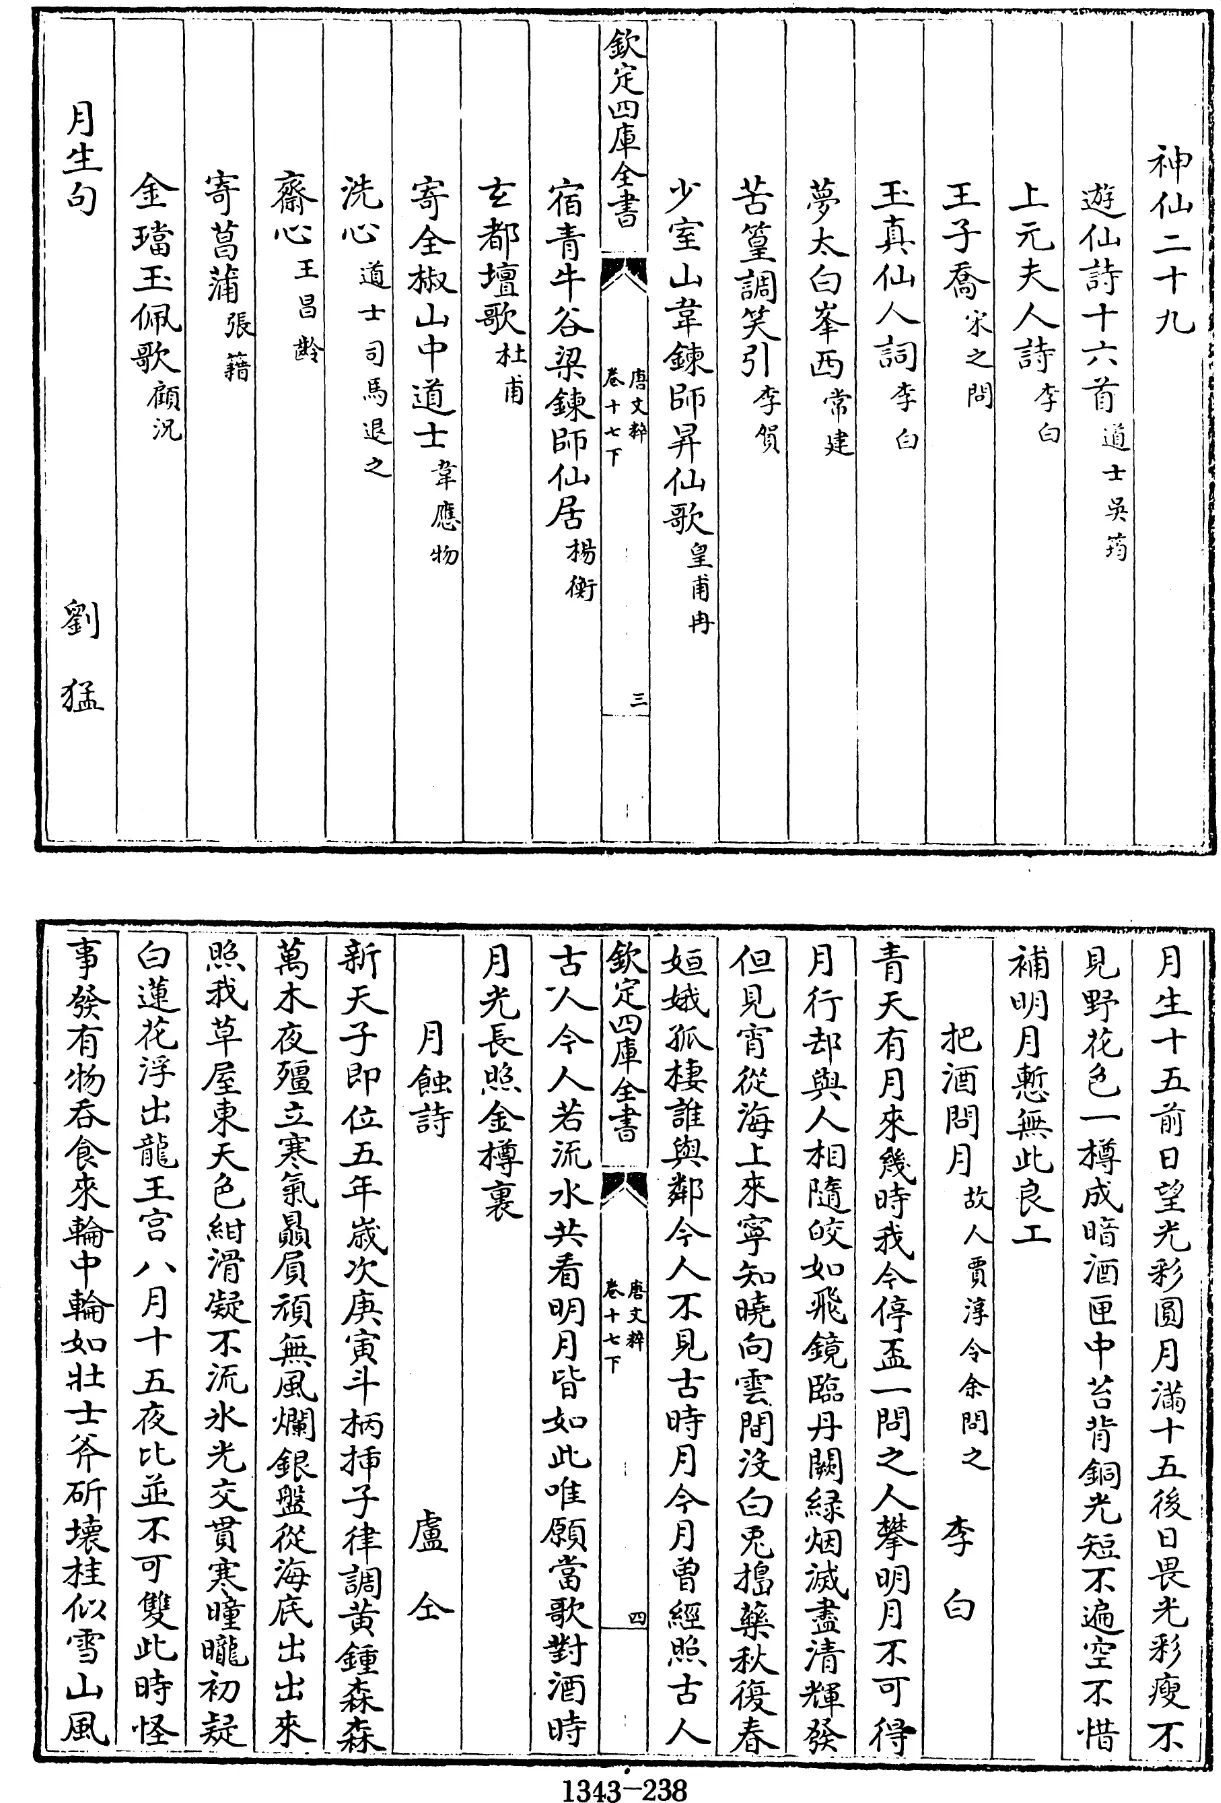 神仙二十九
遊仙詩十六首 道士吳筠
上元夫人詩 李白
王子喬 宋之問
玉真仙人詞 李白
夢太白峯西 常建
苦篁調笑引 李賀
少室山韋鍊師昇仙歌 皇甫冉
欽定四庫全書
唐文粹
卷十七下
三
宿青牛谷梁鍊師仙居 楊衡
玄都壇歌 杜甫
寄全椒山中道士 韋應物
洗心 道士司馬退之
齋心 王昌齡
寄菖蒲 張籍
金璫玉佩歌 顧況
月生句 劉猛
月生十五前日望光彩圓月滿十五後日畏光彩瘦不
見野花色一樽成暗酒匣中苔背銅光短不遍空不惜
補明月慙無此良工
把酒問月 故人賈淳令余問之 李白
青天有月來幾時我今停盃一問之人攀明月不可得
月行却與人相隨皎如飛鏡臨丹闕緑烟滅盡清輝發
但見宵從海上來寧知曉向雲間沒白兎搗藥秋復春
姮娥孤棲誰與鄰今人不見古時月今月曾經照古人
欽定四庫全書
唐文粹
卷十七下
四
古人今人若流水共看明月皆如此唯願當歌對酒時
月光長照金樽裏
月蝕詩 盧仝
新天子即位五年嵗次庚寅斗柄揷子律調黃鍾森森
萬木夜殭立寒氣贔屓頑無風爛銀盤從海底出出來
照我草屋東天色紺滑凝不流氷光交貫寒曈曨初疑
白蓮花浮出龍王宫八月十五夜比並不可雙此時怪
事發有物吞食來輪中輪如壯士斧斫壊桂似雪山風
1343-238